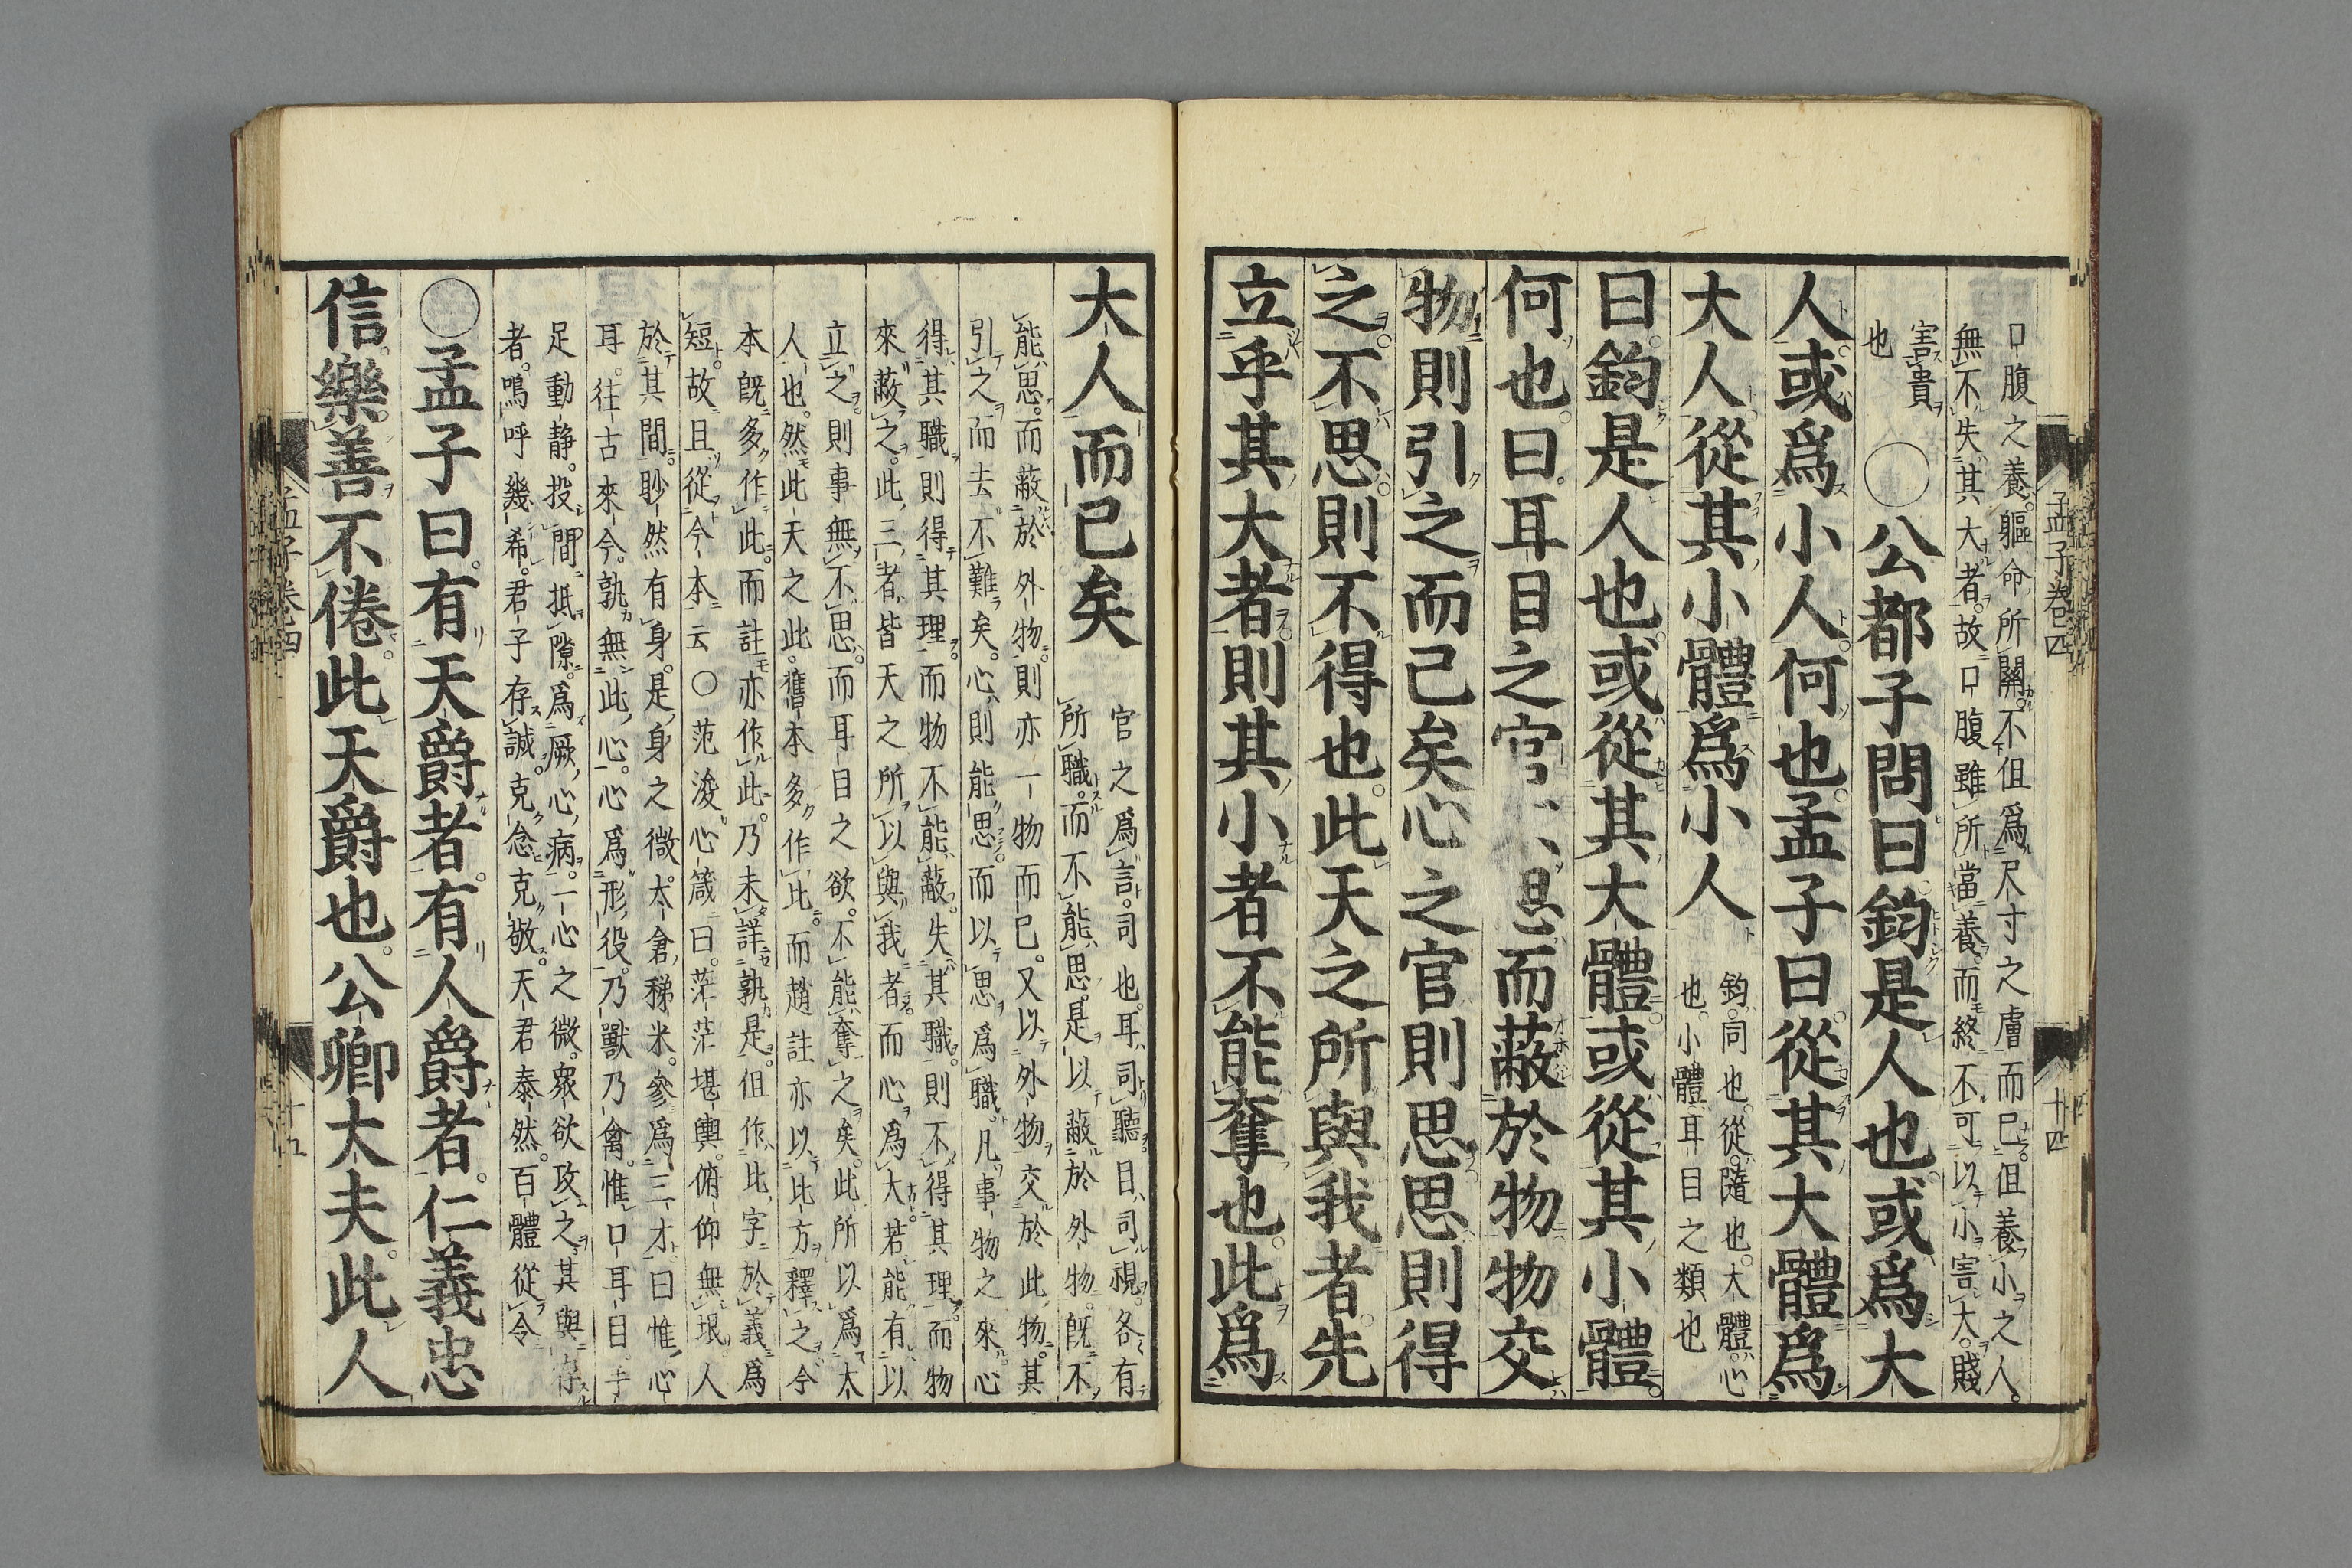 口腹之養。軀命所關。不但爲尺寸之膚而已。但養小之人。
無不失其大者。故口腹雖所當養。而終不可以小害大。賤
害貴
也
○公都子問曰鈞是人也或爲大
人或爲小人何也孟子曰從其大體爲
大人從其小體爲小人
鈞。同也。從。隨也。大體。心
也。小體。耳目之類也
曰鈞是人也或從其大體或從其小體
何也曰耳目之官 思而蔽於物物交
物則引之而已矣心之官則思思則得
之不思則不得也此天之所與我者先
立乎其大者則其小者不能奪也此爲
孟子卷四
十四
大人而已矣
官之爲言。司也。耳司聽。目司視。各有
所職。而不能思。是以蔽於外物。既不
能思。而蔽於外物。則亦一物而已。又以外物交於此物。其
引之而去不難矣。心則能思。而以思爲職。凡事物之來。心
得其職則得其理。而物不能蔽。失其職。則不得其理。而物
來蔽之。此三者。皆天之所以與我者。而心爲大。若能有以
立之。則事無不思。而耳目之欲。不能奪之矣。此所以爲大
人也。然此天之此。舊本多作比。而趙註亦以比方釋之。今
本既多作此。而註亦作此。乃未詳孰是。但作比字。於義爲
短。故且從今本云○范浚心箴曰。茫茫堪輿。俯仰無垠。人
於其間。眇然有身。是身之微。太倉稊米。參爲三才。曰惟心
耳。往古來今。孰無此心。心爲形役。乃獸乃禽。惟口耳目。手
足動静。投間抵隙。爲厥心病。一心之微。衆欲攻之。其與存
者。嗚呼幾希。君子存誠。克念克敬。天君泰然。百體從令
○孟子曰有天爵者有人爵者仁義忠
信樂善不倦此天爵也公卿大夫此人